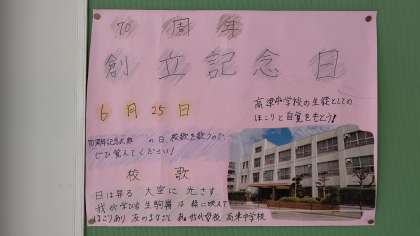 70 周 年
創 立 記 念 日
6 月 25 日
高津中学校の生徒としての
ほこりと自覚をもとう!
70周年記念式典 の日 校歌を歌うので
ぜひ覚えてください!
校 歌
日は昇る 大空に 光さす
我が学び舎 生駒嶺は 緑に映えて
ほこりあり 友のまなざし 我が学び舎 高津中学校